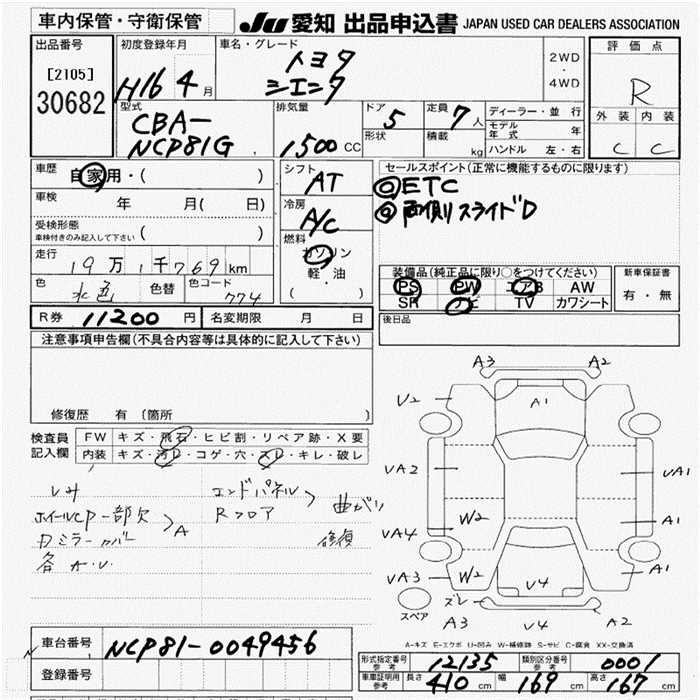 車内保管・守衛保管
JU 愛知 出品申込書 JAPAN USED CAR DEALERS ASSOCIATION
出品番号
[2105]
30682
初度登録年月
H16 4 月
車名・グレード
トヨタ
シエンタ
2WD
・
4WD
評価点
R
外装 内装
C C
型式
CBA-
NCP81G
排気量
1500 CC
ドア 5
形状
定員 7 人
積載 kg
ディーラー・並行
モデル年式 年
ハンドル 左・右
車歴
自家用・( )
車検 年 月( 日)
受検形態
車検付きのみ記入して下さい ( )
走行
19万1千769km
色 水色 色替 色コード 774
シフト
AT
冷房
A/C
燃料
ガソリン
軽・油
( )
セールスポイント(正常に機能するものに限ります)
◎ETC
◎両側スライドD
装備品(純正品に限り○をつけてください)
PS PW エアB AW
SR ナビ TV カワシート
新車保証書
有・無
後日品
R券 11200 円 名変期限 月 日
注意事項申告欄(不具合内容等は具体的に記入して下さい)
修復歴 有〔箇所 〕
検査員
記入欄
FW キズ・飛石・ヒビ割・リペア跡・X要
内装 キズ・汚レ・コゲ・穴・スレ・キレ・破レ
ホイールCP一部欠
ミラーカバー
A
各A.U.
エンドパネル
Rフロア
曲がり
修復
A3 A2
U2 A1
UA2 UA1
W2 A1
UA4
UA3 W2 A1
V4
ズレ
スペア
A3 V4 A2
A-キズ E-エクボ U-凹み W-補修跡 S-サビ C-腐食 XX-交換済
車台番号 NCP81-0049456
登録番号
形式指定番号 参考 12135 類別区分番号 参考 0001
車庫証明用 参考 長さ 410 cm 幅 169 cm 高さ 167 cm